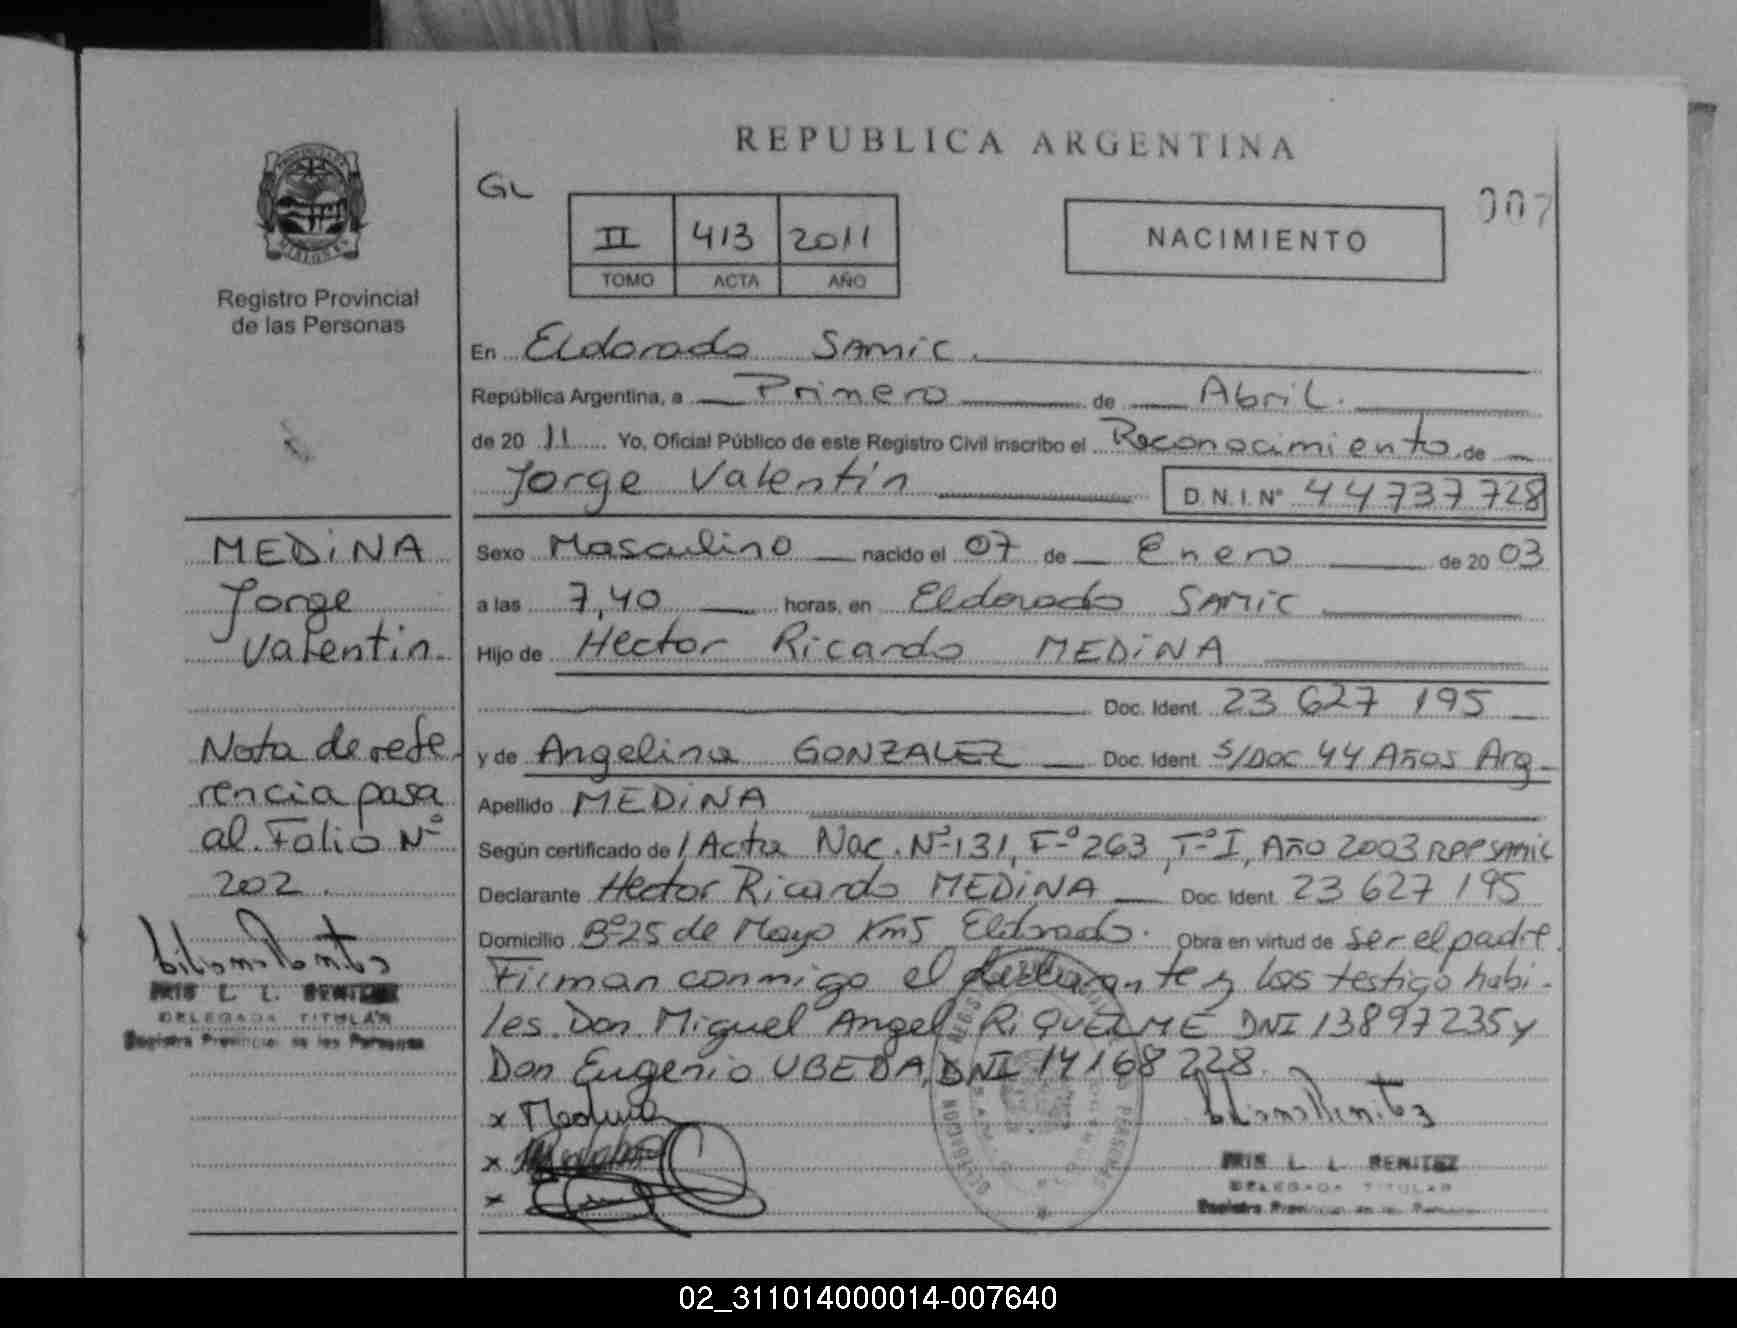 REPUBLICA ARGENTINA
GL
II 413 2011
TOMO ACTA AÑO
NACIMIENTO
007
Registro Provincial
de las Personas
En Eldorado SAMIC.
República Argentina, a Primero de Abril.
de 20 11 Yo, Oficial Público de este Registro Civil inscribo el Reconocimiento de
Jorge Valentín D.N.I. Nº 44737728
Sexo Masculino nacido el 07 de Enero de 20 03
a las 7,40 horas, en Eldorado SAMIC
Hijo de Hector Ricardo MEDINA
Doc. Ident. 23 627 195
y de Angelina GONZALEZ Doc. Ident. S/Doc 44 Años Arg
Apellido MEDINA
Según certificado de 1 Acta Nac. Nº 131, Fº 263, Tº I, Año 2003 RPP SAMIC
Declarante Hector Ricardo MEDINA Doc. Ident. 23 627 195
Domicilio Bº 25 de Mayo Km5 Eldorado. Obra en virtud de ser el padre.
Firman conmigo el declarante y los testigo habi-
les Don Miguel Angel RIQUELME DNI 13897235 y
Don Eugenio UBEDA, DNI 14168228.
x Medina
x
x
IRIS L. L. BENITEZ
DELEGADA TITULAR
Registro Provincial de las Personas
MEDINA
Jorge
Valentin
Nota de refe-
rencia pasa
al Folio Nº
202.
IRIS L. L. BENITEZ
DELEGADA TITULAR
Registro Provincial de las Personas
02_311014000014-007640